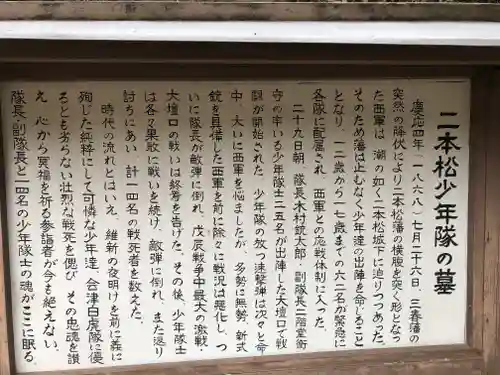 二本松少年隊の墓
慶応四年(一八六八)七月二十六日、三春藩の
突然の降伏により二本松藩の横腹を突く形となっ
た西軍は、潮の如く二本松城下に迫りつつあった。
そのため藩は止むなく少年達の出陣を命じること
となり、一二歳から一七歳までの六二名が緊急に
各隊に配属され、西軍との応戦体制に入った。
二十九日朝、隊長木村銃太郎・副隊長二階堂衛
守の率いる少年隊士二五名が出陣した大壇口で戦
闘が開始された。少年隊の放つ速撃弾は次々と命
中、大いに西軍を悩ましたが、多勢に無勢、新式
銃を具備した西軍を前に除々に戦況は悪化し、つ
いに隊長が敵弾に倒れ、戊辰戦争中最大の激戦・
大壇口の戦いは終焉を告げた。その後、少年隊士
は各々果敢に戦いを続け、敵弾に倒れ、また返り
討ちにあい、計一四名の戦死者を数えた。
時代の流れとはいえ、維新の夜明けを前に義に
殉じた純粋にして可憐な少年達、会津白虎隊に優
るとも劣らない壮烈な戦死を偲び、その忠魂を讃
え、心から冥福を祈る参詣者が今も絶えない。
隊長・副隊長と一四名の少年隊士の魂がここに眠る。